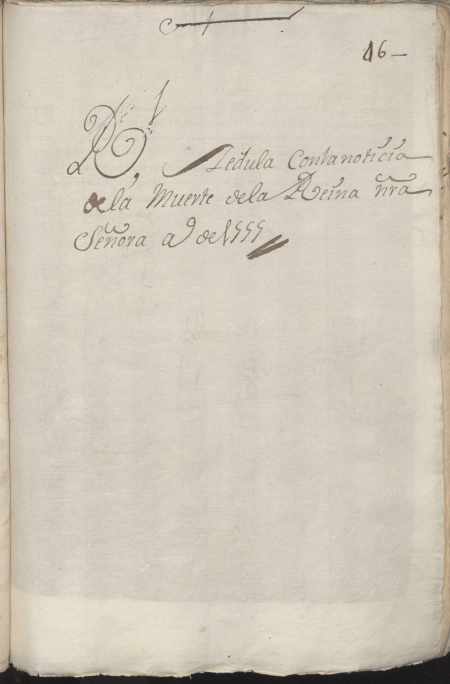 16
Rl Sedula Con la noticia
de la Muerte de la Reina nra
Señora aº de 1555